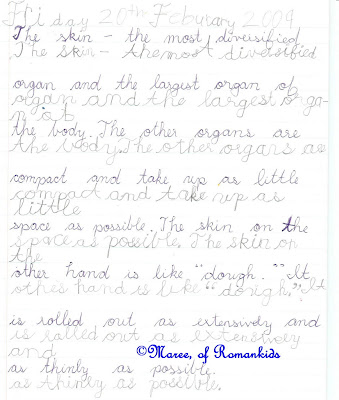 Friday 20th Febuary 2009
The skin - the most diversified
The skin - the most diversified
organ and the largest organ of
organ and the largest orga-
n of
the body. The other organs are
the body. The other organs are
compact and take up as little
compact and take up as
little
space as possible. The skin on the
space as possible. The skin on
the
other hand is like "dough." It
other hand is like "dough." It
is rolled out as extensively and
is rolled out as extensively
and
©Maree, of Romankids
as thinly as possible.
as thinly as possible.